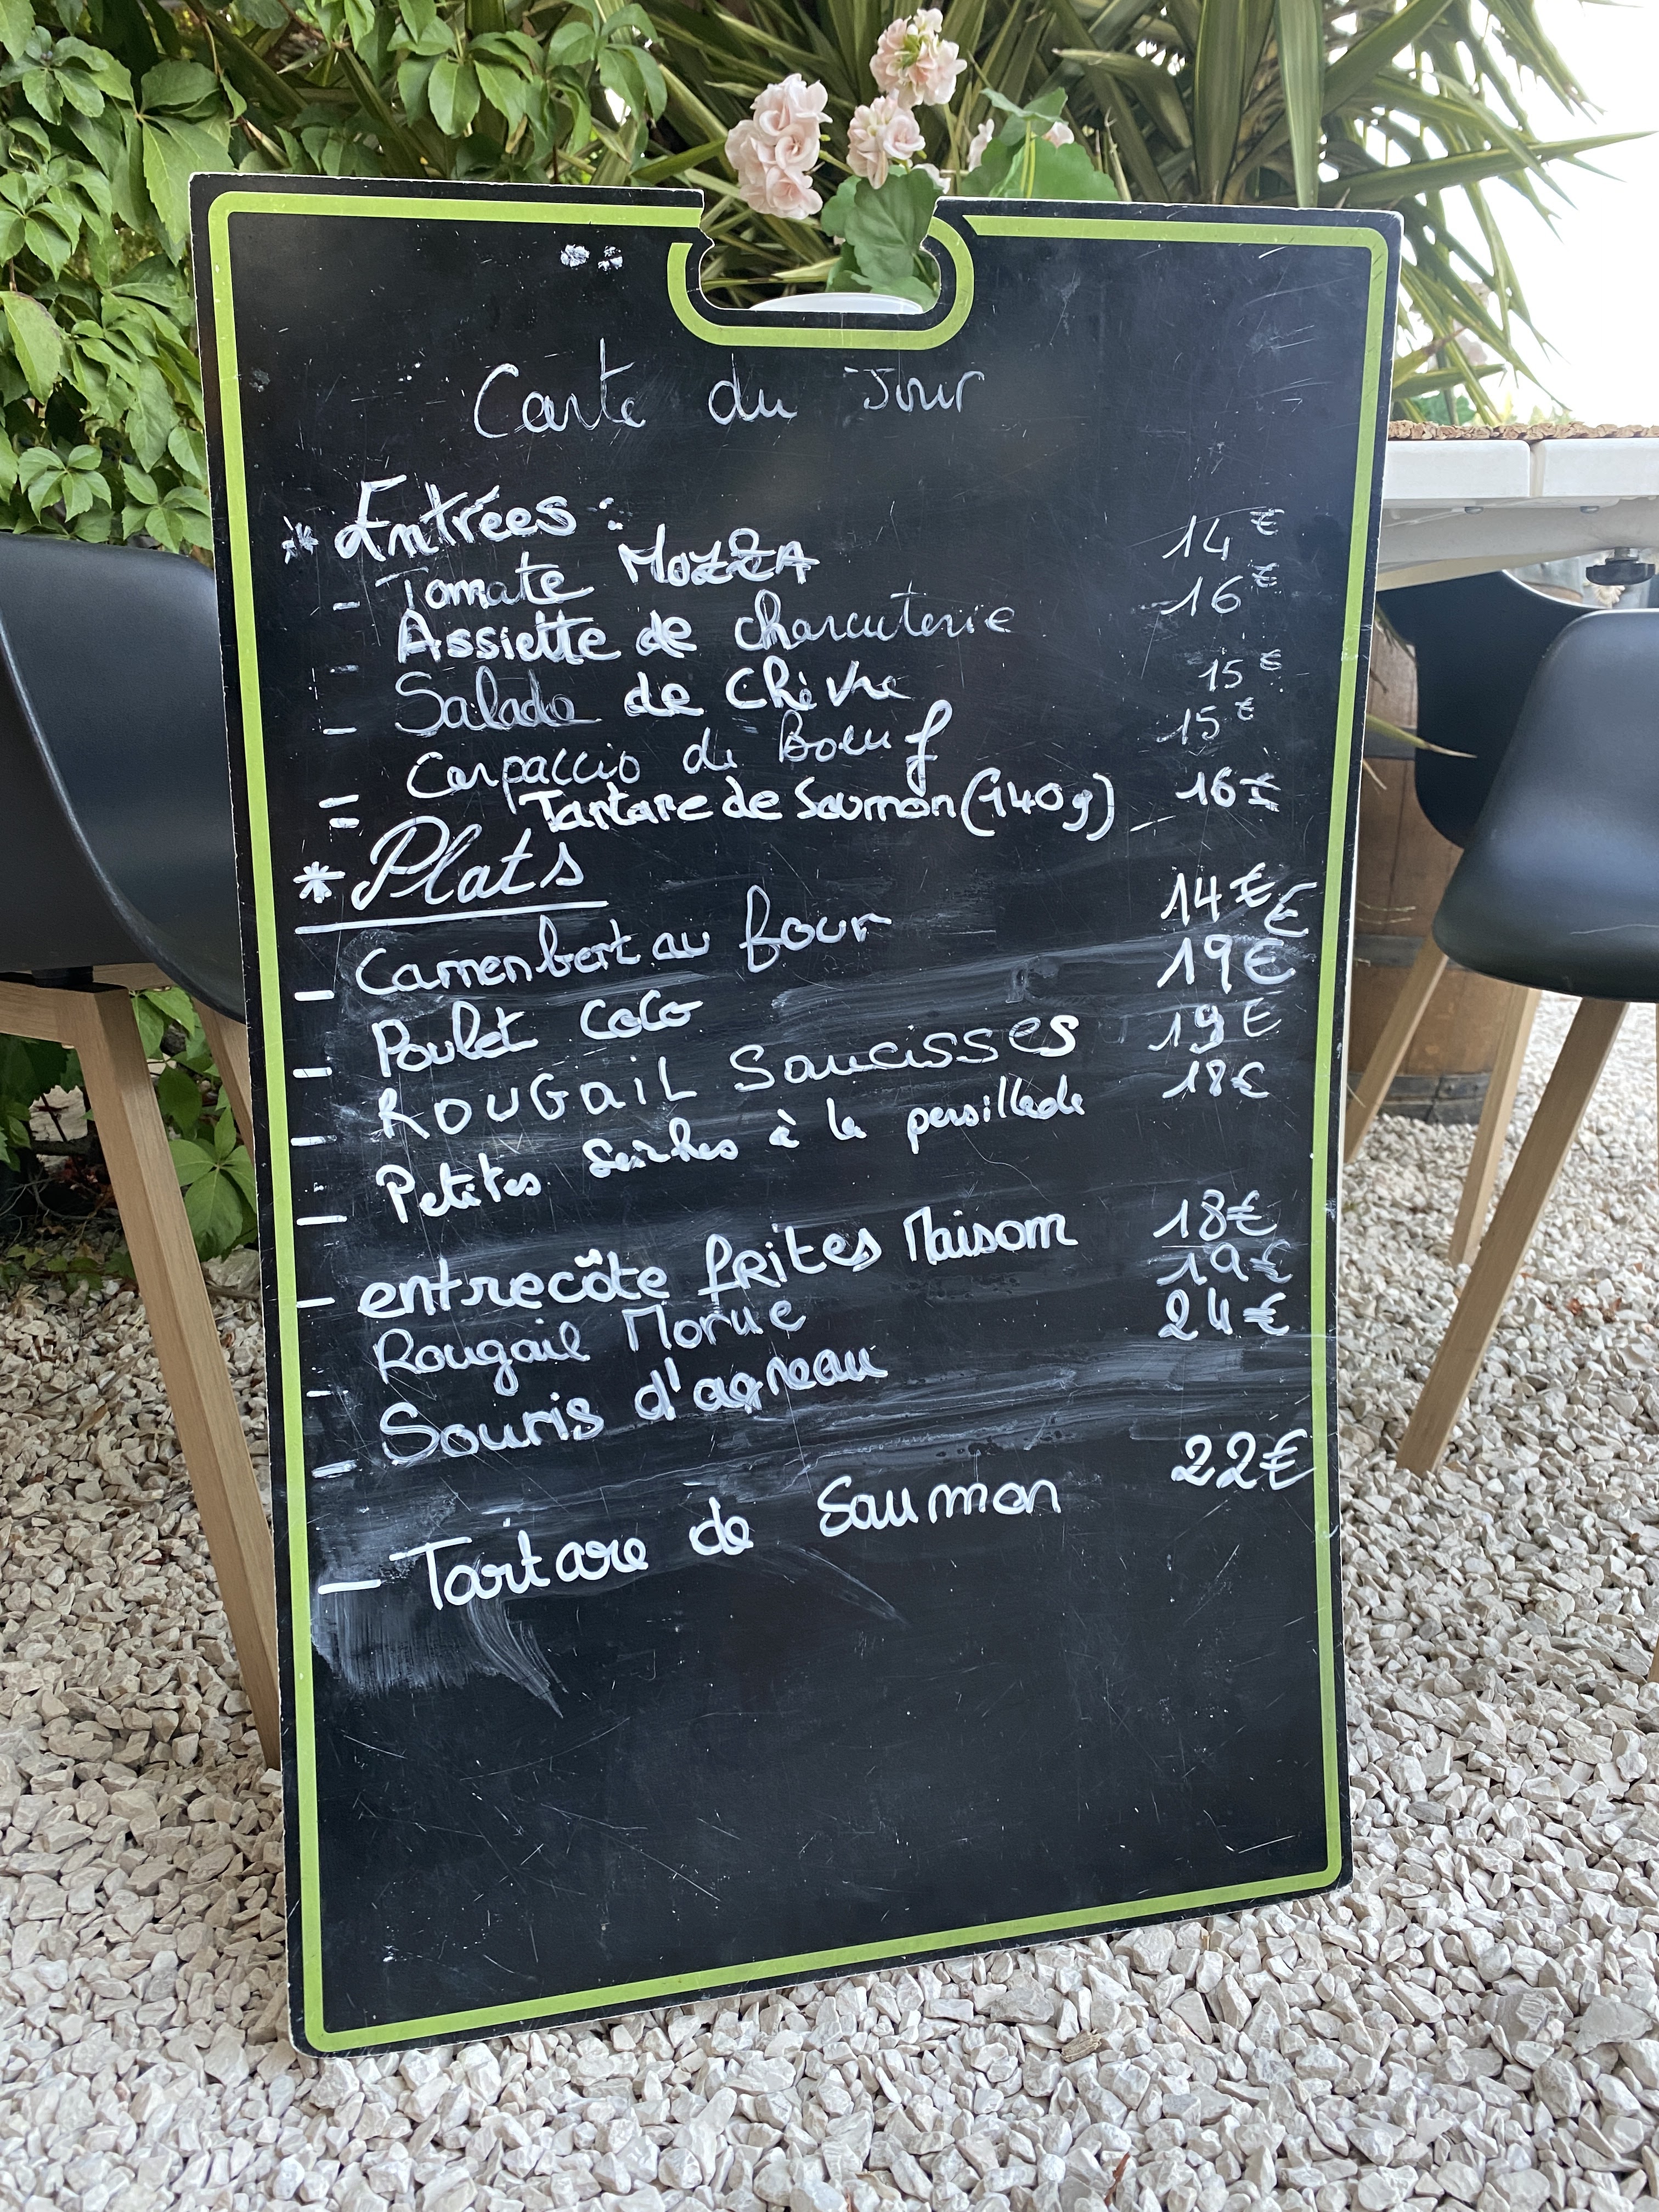 Carte du Jour
* Entrées :
- Tomate MOZZA 14€
Assiette de charcuterie 16€
- Salade de Chèvre 15€
- Carpaccio de Boeuf 15€
= Tartare de Saumon (140g) 16€
* Plats
- Camenbert au four 14€ €
- Poulet CoCo 19€
- ROUGAIL Saucisses 19€
- Petites Seiches à la persillade 18€
- entrecôte frites Maison 18€
- Rougail Morue 19€
- Souris d'agneau 24€
- Tartare de Saumon 22€